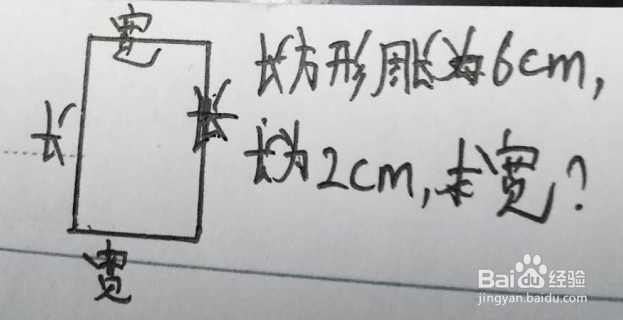 宽
长
长
宽
长方形周长为6cm,
长为2cm,求宽?
Baidu经验
jingyan.baidu.com